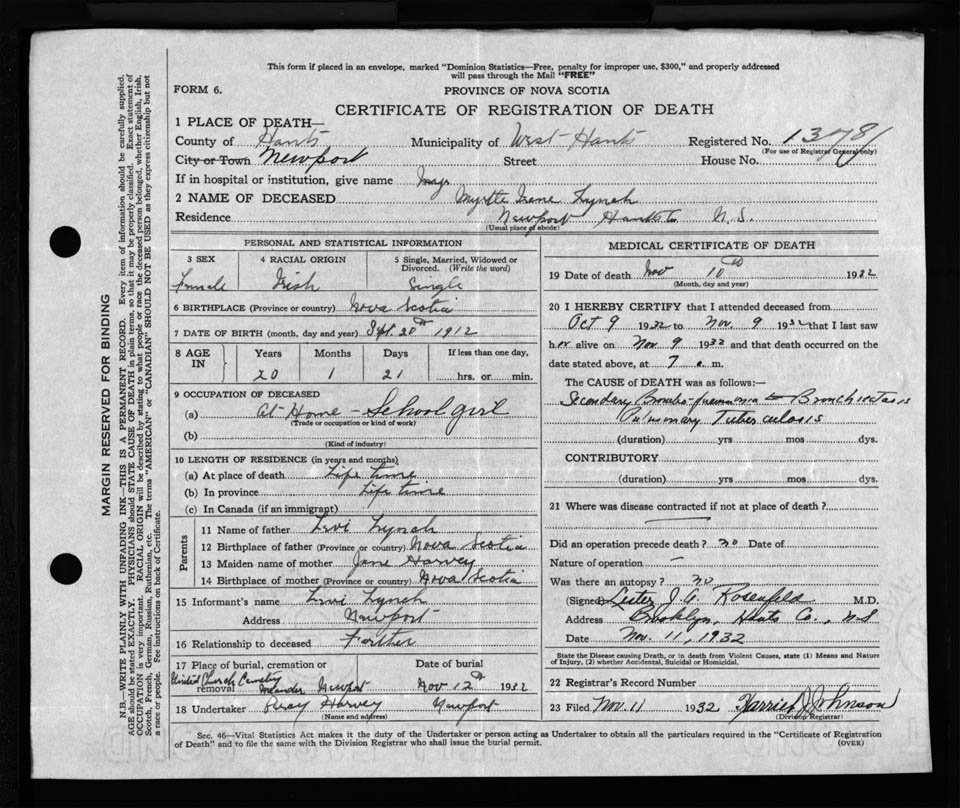 This form if placed in an envelope, marked "Dominion Statistics—Free, penalty for improper use, $300," and properly addressed
will pass through the Mail "FREE"
FORM 6.
PROVINCE OF NOVA SCOTIA
CERTIFICATE OF REGISTRATION OF DEATH
1 PLACE OF DEATH—
County of Hants Municipality of West Hants Registered No. 13781
(For use of Registrar General only)
City or Town Newport Street House No.
If in hospital or institution, give name
2 NAME OF DECEASED Myrtle Irene Lynch
Residence Newport Hants Co N.S.
(Usual place of abode)
PERSONAL AND STATISTICAL INFORMATION
3 SEX 4 RACIAL ORIGIN 5 Single, Married, Widowed or
Divorced. (Write the word)
Female Irish Single
6 BIRTHPLACE (Province or country) Nova Scotia
7 DATE OF BIRTH (month, day and year) Sept. 20th 1912
8 AGE IN Years Months Days If less than one day,
20 1 21 hrs. or min.
9 OCCUPATION OF DECEASED
(a) At Home - School girl
(Trade or occupation or kind of work)
(b)
(Kind of industry)
10 LENGTH OF RESIDENCE (in years and months)
(a) At place of death Life time
(b) In province Life time
(c) In Canada (if an immigrant)
Parents
11 Name of father Levi Lynch
12 Birthplace of father (Province or country) Nova Scotia
13 Maiden name of mother Jane Harvey
14 Birthplace of mother (Province or country) Nova Scotia
15 Informant's name Levi Lynch
Address Newport
16 Relationship to deceased Father
17 Place of burial, cremation or Date of burial
removal United Church Cemetery Newport Nov 12th 1932
18 Undertaker Percy Harvey Newport
(Name and address)
MEDICAL CERTIFICATE OF DEATH
19 Date of death Nov 10th 1932
(Month, day and year)
20 I HEREBY CERTIFY that I attended deceased from
Oct 9 1932 to Nov. 9 1932 that I last saw
her alive on Nov 9 1932 and that death occurred on the
date stated above, at 7 a.m.
The CAUSE of DEATH was as follows:—
Secondary Broncho-pneumonia Bronchiectasis
Pulmonary Tuberculosis
(duration) yrs mos dys.
CONTRIBUTORY
(duration) yrs. mos. dys.
21 Where was disease contracted if not at place of death?
Did an operation precede death? no Date of
Nature of operation —
Was there an autopsy? no
(Signed) Lester J. A. Rosenfeld M.D.
Address Brooklyn, Hants Co., N.S
Date Nov. 11, 1932
State the Disease causing Death, or in death from Violent Causes, state (1) Means and Nature
of Injury, (2) whether Accidental, Suicidal or Homicidal.
22 Registrar's Record Number
23 Filed Nov. 11 1932 Johnson
(Division Registrar)
Sec. 46—Vital Statistics Act makes it the duty of the Undertaker or person acting as Undertaker to obtain all the particulars required in the "Certificate of Registration
of Death" and to file the same with the Division Registrar who shall issue the burial permit.
(OVER)
MARGIN RESERVED FOR BINDING
N.B.—WRITE PLAINLY WITH UNFADING INK—THIS IS A PERMANENT RECORD. Every item of information should be carefully supplied.
AGE should be stated EXACTLY. PHYSICIANS should STATE CAUSE OF DEATH in plain terms, so that it may be properly classified. Exact statement of
OCCUPATION is very important. RACIAL ORIGIN will be described by stating to what people or race the deceased person belonged, whether English, Irish,
Scotch, French, German, Russian, Ruthenian, etc. The terms "AMERICAN" or "CANADIAN" SHOULD NOT BE USED as they express citizenship but not
a race or people. Fee instructions on back of Certificate.